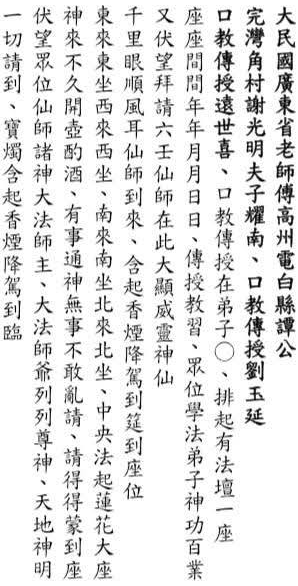 大民國廣東省老師傅高州電白縣譚公
完灣角村謝光明夫子耀南、口教傳授劉玉延
口教傳授遠世喜、口教傳授在弟子〇、排起有法壇一座
座座間間年年月月日日、傳授教習、眾位學法弟子神功百業
又伏望拜請六壬仙師在此大顯威靈神仙
千里眼順風耳仙師到來、含起香煙降駕到筵到座位
東來東坐西來西坐、南來南坐北來北坐、中央法起蓮花大座
神來不久開壺酌酒、有事通神無事不敢亂請、請得得蒙到座
伏望眾位仙師諸神大法師主、大法師爺列列尊神、天地神明
一切請到、寶燭含起香煙降駕到臨